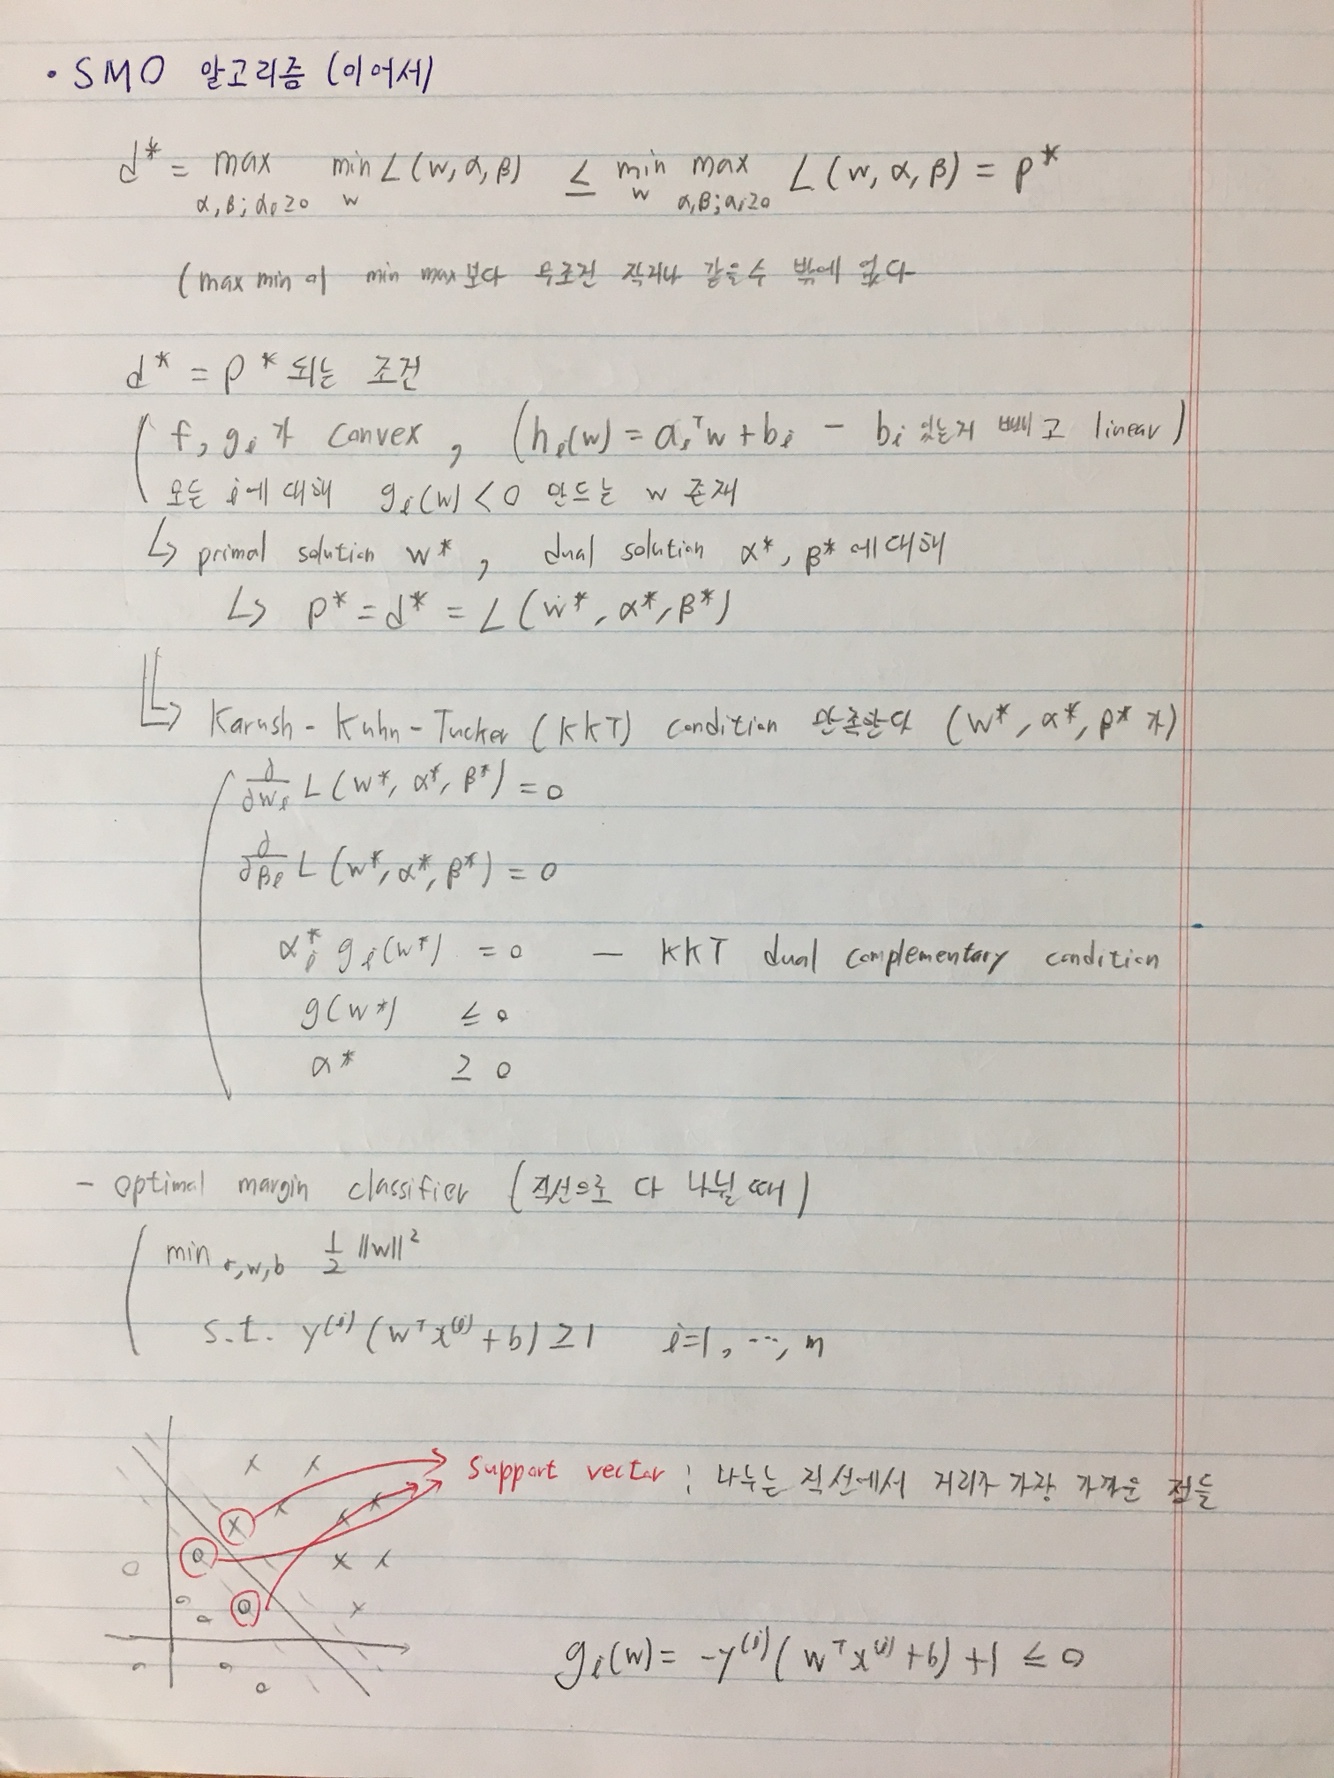 • SMO 알고리즘 (이어서)
d* = max α,β;αi≥0 min w L(w,α,β) ≤ min w max α,β;αi≥0 L(w,α,β) = p*
(max min이 min max보다 무조건 작거나 같을수 밖에 없다
d* = p* 되는 조건
f, gi가 convex, (hi(w) = aiᵀw + bi – bi 있는거 빼고 linear)
모든 i에 대해 gi(w) < 0 만드는 w 존재
↳ primal solution w*, dual solution α*, β*에 대해
↳ p* = d* = L(w*, α*, β*)
↳ Karush-Kuhn-Tucker (KKT) condition 만족한다 (w*, α*, β*가)
∂/∂wi L(w*, α*, β*) = 0
∂/∂βi L(w*, α*, β*) = 0
αi* gi(w*) = 0 — KKT dual complementary condition
g(w*) ≤ 0
α* ≥ 0
- optimal margin classifier (직선으로 다 나뉠 때)
min r,w,b 1/2 ||w||²
s.t. y⁽ⁱ⁾(wᵀx⁽ⁱ⁾+b) ≥ 1 i=1, ..., m
support vector : 나누는 직선에서 거리가 가장 가까운 점들
gi(w) = -y⁽ⁱ⁾(wᵀx⁽ⁱ⁾+b) + 1 ≤ 0